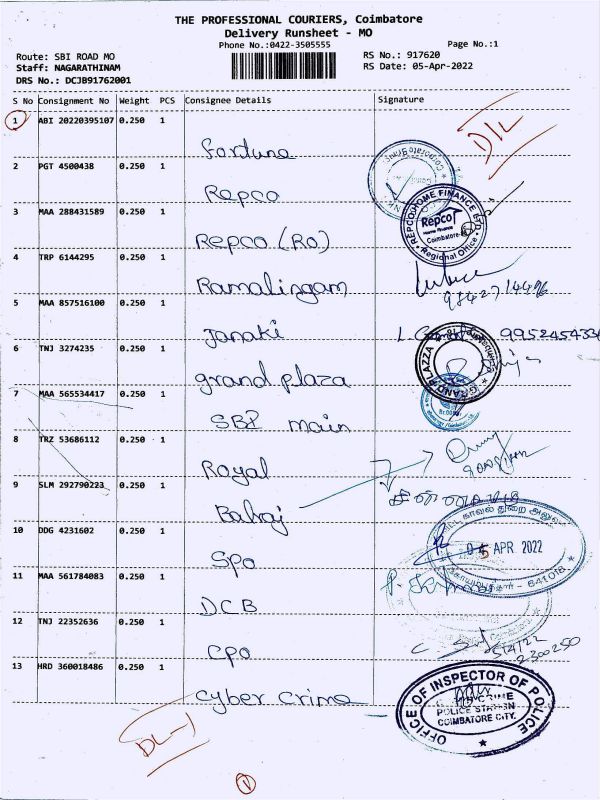 THE PROFESSIONAL COURIERS, Coimbatore
Delivery Runsheet - MO
Phone No.:0422-3505555
Page No.:1
Route: SBI ROAD MO
RS No.: 917620
Staff: NAGARATHINAM
RS Date: 05-Apr-2022
DRS No.: DCJB91762001
S No Consignment No Weight PCS Consignee Details Signature
1 ABI 20220395107 0.250 1
D/L
Fortune
2 PGT 4500438 0.250 1
Repco
3 MAA 288431589 0.250 1
REPCO HOME FINANCE LTD.
Repco
Home Finance
Coimbatore
Regional Office
Repco (Ro)
4 TRP 6144295 0.250 1
Ramalingam
5 MAA 857516100 0.250 1
Janaki
6 TNJ 3274235 0.250 1
GRAND PLAZZA
grand plaza
7 MAA 565534417 0.250 1
SBI main
8 TRZ 53686112 0.250 1
Royal
9 SLM 292790223 0.250 1
Balraj
10 DDG 4231602 0.250 1
05 APR 2022
641018
Spo
11 MAA 561784083 0.250 1
DCB
12 TNJ 22352636 0.250 1
5/4/22
2300250
CPO
13 HRD 360018486 0.250 1
OFFICE OF INSPECTOR OF POLICE
CRIME
POLICE STATION
COIMBATORE CITY.
Cyber Crime
DL-1